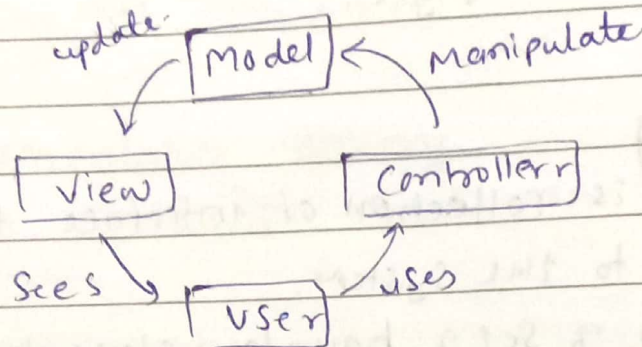 update.
Model
Manipulate
View
Controllerr
Sees
uses
User